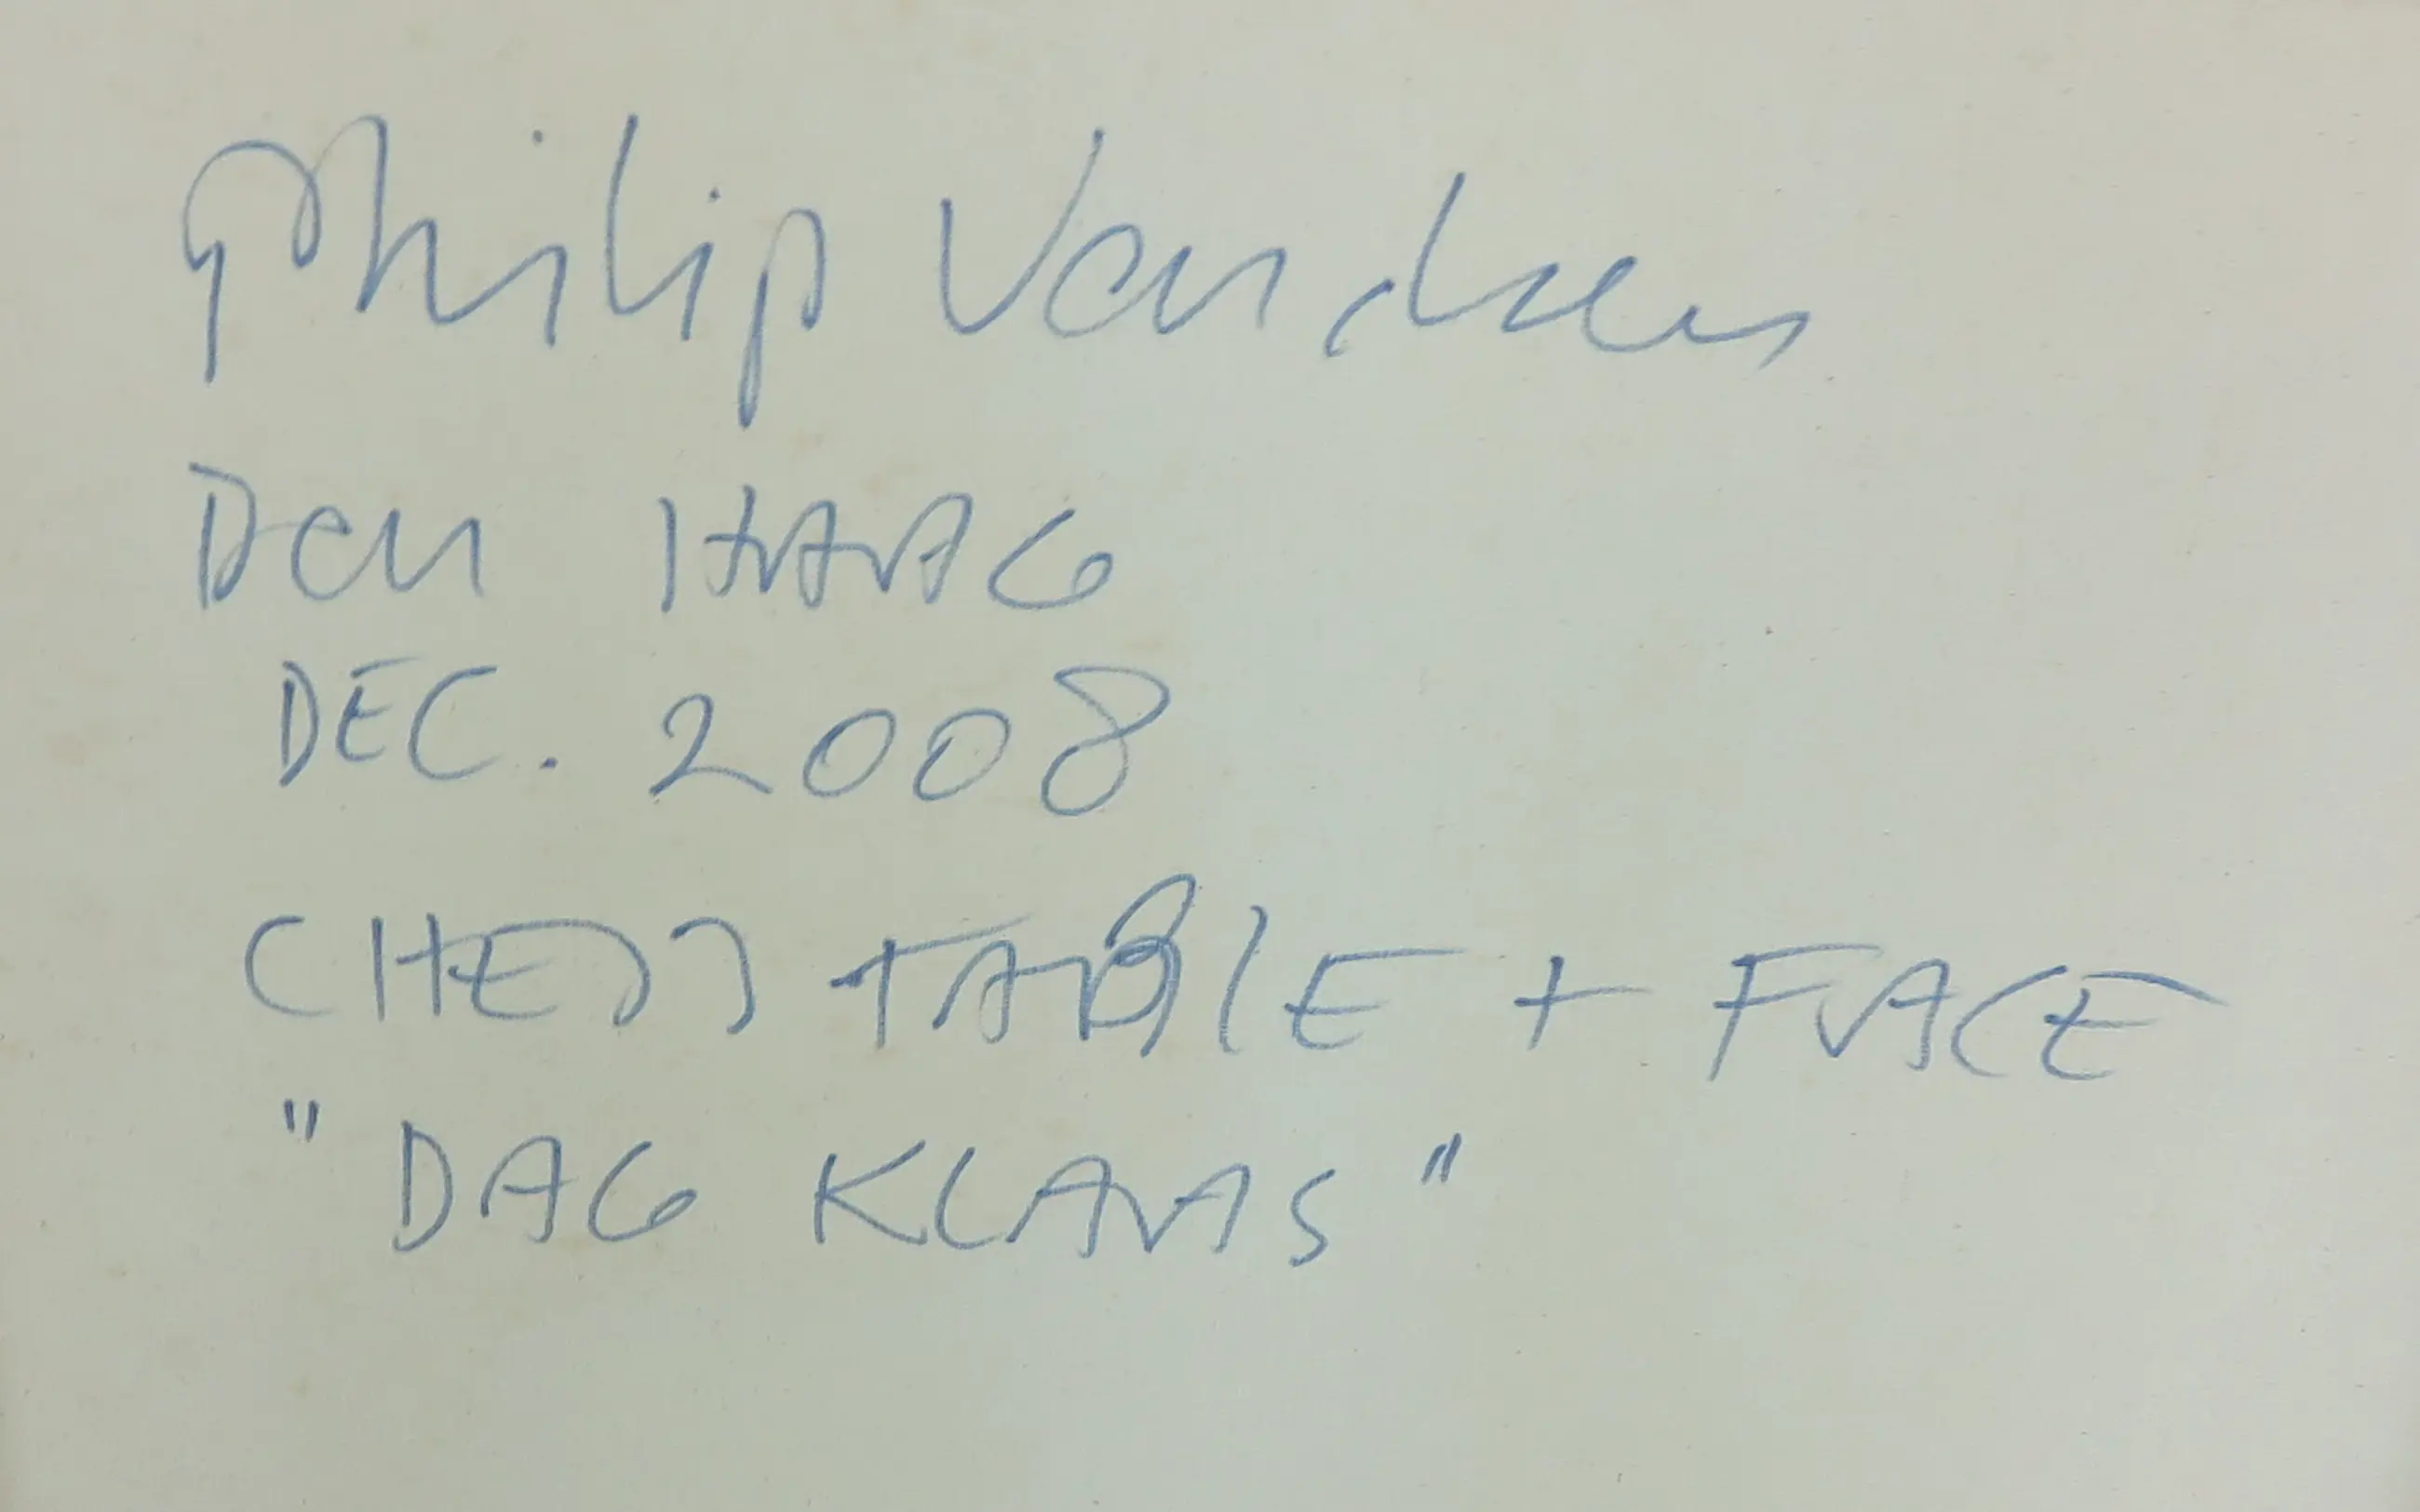 Philip Van
Den HAAG
DEC. 2008
CHESS TABLE + FACE
"DAG KLAAS"